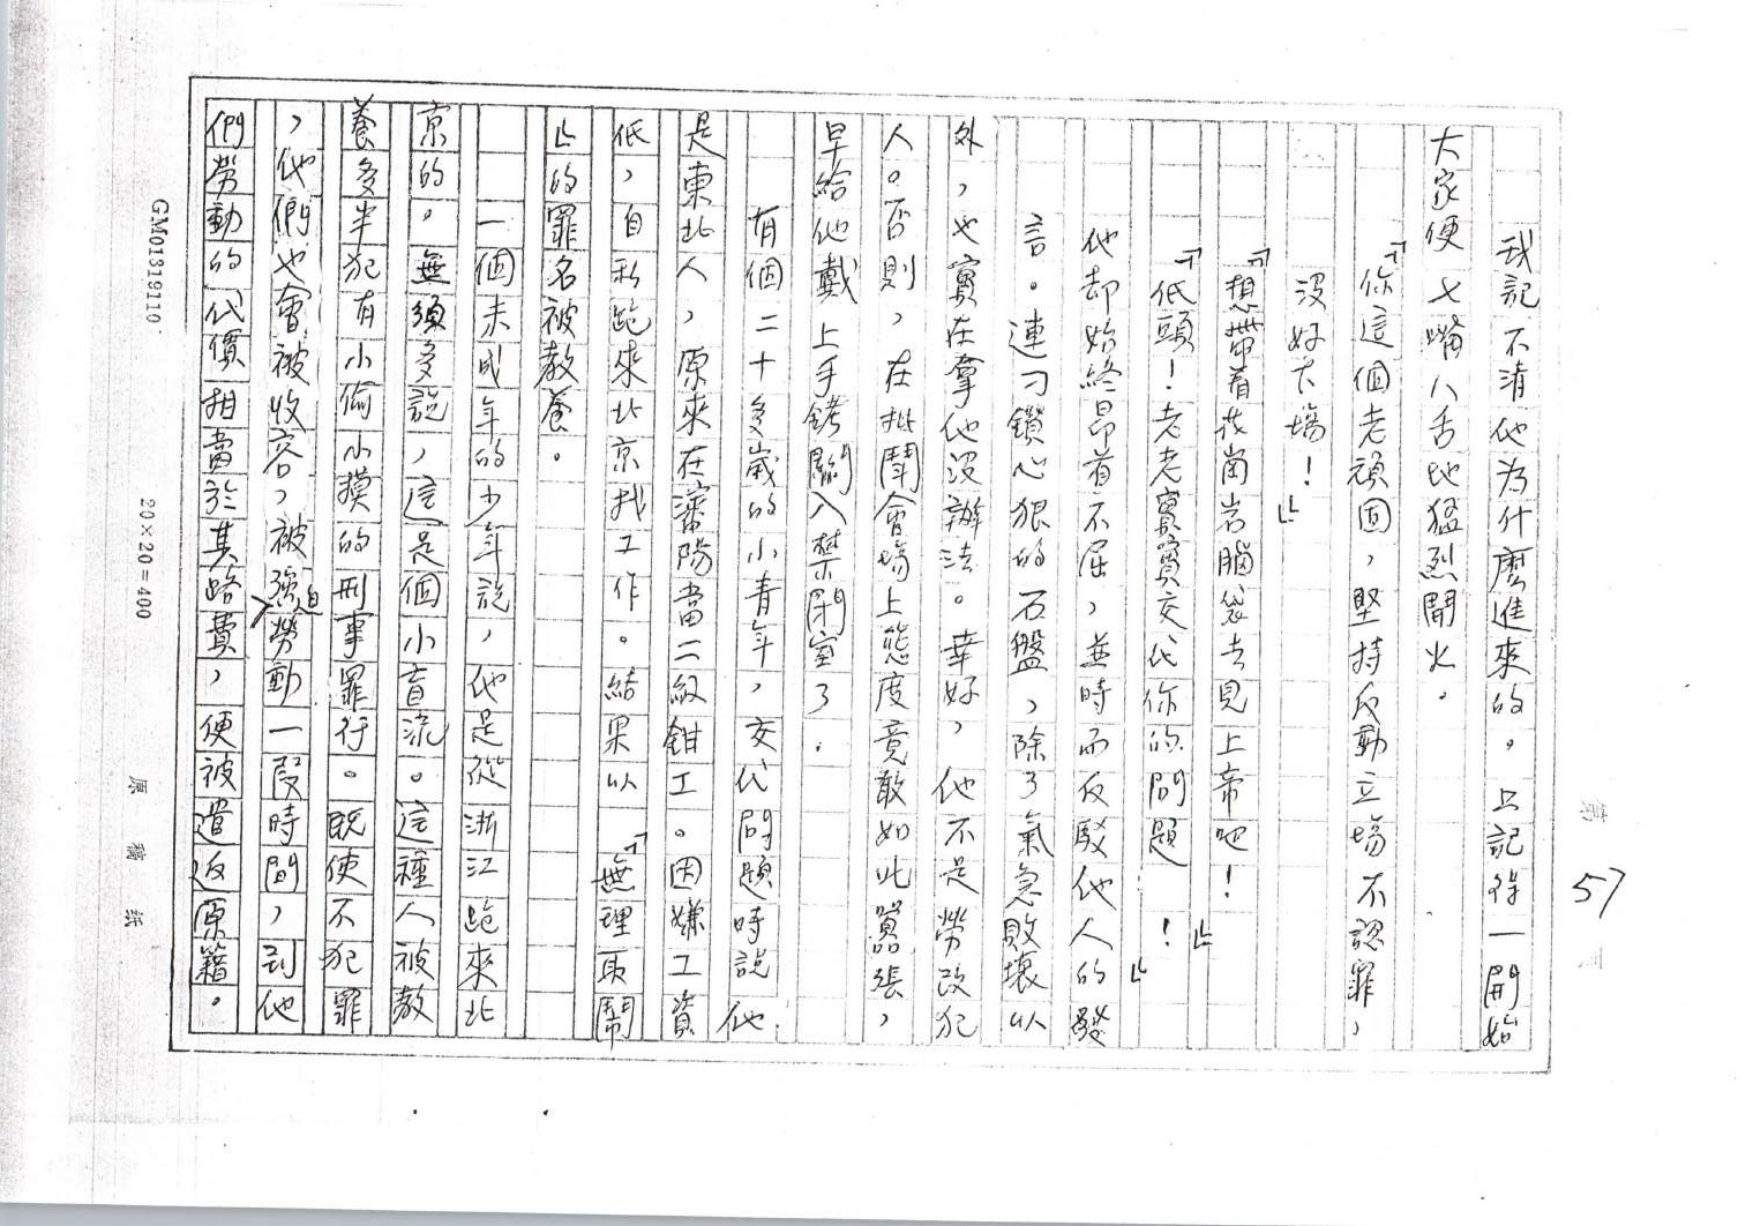 第 57 頁
我記不清他为什麼進來的。只記得一開始
大家便七嘴八舌地猛烈開火。
「你這個老頑固，堅持反動立場不認罪，
沒好下場！」
「想帶着花崗岩腦袋去見上帝吧！」
「低頭！老老實實交代你的問題！」
他却始終昂首不屈，並時而反駁他人的發
言。連刁鑽心狠的石盤，除了氣急敗壞以
外，也實在拿他沒辦法。幸好，他不是勞改犯
人。否則，在批鬥會場上態度竟敢如此囂張，
早給他戴上手銬關入禁閉室了。
有個二十多歲的小青年，交代問題時說他
是東北人，原來在瀋陽當二級鉗工。因嫌工資
低，自私跑來北京找工作。結果以「無理取鬧
」的罪名被教養。
一個未成年的少年說，他是從浙江跑來北
京的。無須多說，這是個小盲流。這種人被教
養多半犯有小偷小摸的刑事罪行。既使不犯罪
，他們也會被收容，被強迫勞動一段時間，到他
們勞動的代價相當於其路費，便被遣返原籍。
GM01319110
20×20=400
原稿紙